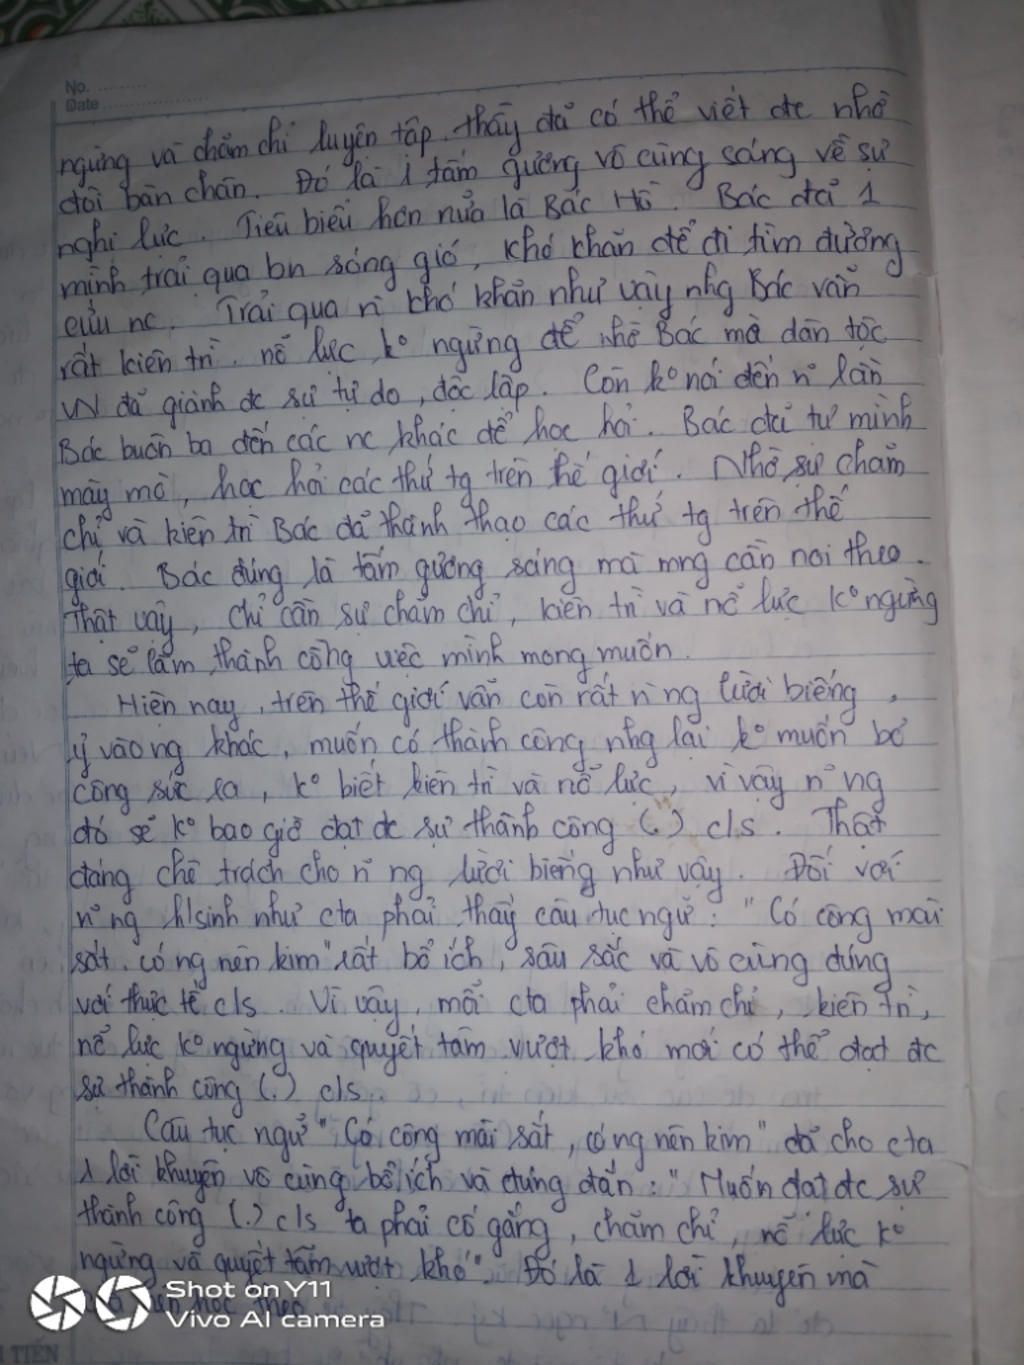 No.
Date
ngừng và chăm chỉ luyện tập. thầy đã có thể viết đc nhờ
đôi bàn chân. Đó là 1 tấm gương vô cùng sáng về sự
nghị lực. Tiêu biểu hơn nữa là Bác Hồ. Bác đã 1
mình trải qua bn sóng gió, khó khăn để đi tìm đường
cứu nc. Trải qua n~ khó khăn như vậy nhg Bác vẫn
rất kiên trì. nỗ lực kº ngừng để nhờ Bác mà dân tộc
VN đã giành đc sự tự do, độc lập. Còn kº nói đến n~ lần
Bác buôn ba đến các nc khác để học hỏi. Bác đã tự mình
mày mò, học hỏi các thứ tg trên thế giới. Nhờ sự chăm
chỉ và kiên trì Bác đã thành thạo các thứ tg trên thế
giới. Bác đúng là tấm gương sáng mà mng cần noi theo.
Thật vậy, chỉ cần sự chăm chỉ, kiên trì và nỗ lực kº ngừng
ta sẽ làm thành công việc mình mong muốn.
Hiện nay, trên thế giới vẫn còn rất n` ng lười biếng,
ỷ vào ng khác, muốn có thành công nhg lại kº muốn bỏ
công sức ra, kº biết kiên trì và nỗ lực, vì vậy n~ ng
đó sẽ kº bao giờ đạt đc sự thành công (.) c/s. Thật
đáng chê trách cho n~ ng lười biếng như vậy. Đối với
n~ ng h/sinh như cta phải thấy câu tục ngữ: "Có công mài
sắt. có ng nên kim" rất bổ ích, sâu sắc và vô cùng đúng
với thực tế c/s. Vì vậy, mỗi cta phải chăm chỉ, kiên trì,
nỗ lực kº ngừng và quyết tâm vượt khó mới có thể đạt đc
sự thành công (.) c/s.
Câu tục ngữ "Có công mài sắt, có ng nên kim" đã cho cta
1 lời khuyên vô cùng bổ ích và đúng đắn: "Muốn đạt đc sự
thành công (.) c/s ta phải cố gắng, chăm chỉ, nỗ lực kº
ngừng và quyết tâm vượt khó". Đó là 1 lời khuyên mà
học theo
Shot on Y11
Vivo AI camera
TIẾN